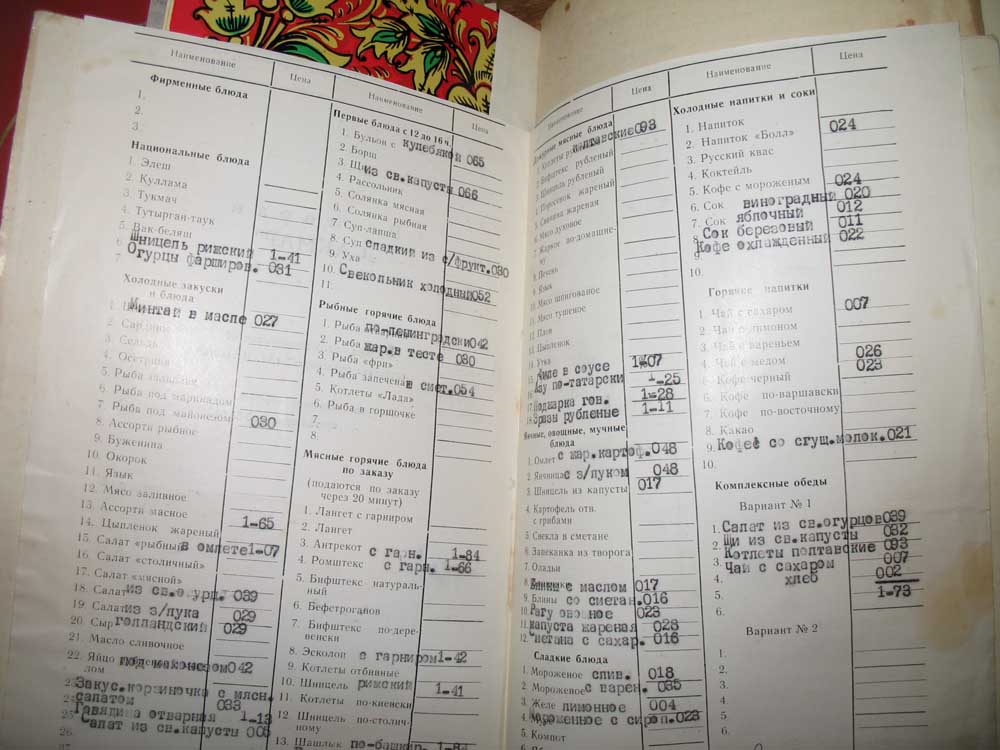 Наименование Цена
Фирменные блюда
1.
2.
3.
Национальные блюда
1. Элеш
2. Куллама
3. Тукмач
4. Тутырган-таук
5. Вак-беляш
6. Шницель рижский 1-41
7. Огурцы фарширов. 031
Холодные закуски
и блюда
1. Минтай в масле 027
3. Сельдь
4. Осетрина
5. Рыба заливная
6. Рыба под маринадом
7. Рыба под майонезом
8. Ассорти рыбное 030
9. Буженина
10. Окорок
11. Язык
12. Мясо заливное
13. Ассорти мясное
14. Цыпленок жареный 1-65
15. Салат «рыбный» в омлете 1-07
16. Салат «столичный»
17. Салат «мясной»
18. Салат из св.огурц. 039
19. Салат из з/лука 029
20. Сыр голландский 029
21. Масло сливочное
22. Яйцо под майонезом 042
23. Закус.корзиночка с мясн.
салатом 033
Говядина отварная 1-13
25. Салат из св.капусты 005
26.
Наименование Цена
Первые блюда с 12 до 16 ч.
1. Бульон с кулебякой 065
2. Борщ
3. Щи из св.капусты 066
4. Рассольник
5. Солянка мясная
6. Солянка рыбная
7. Суп-лапша
8. Суп сладкий из с/фрукт. 030
9. Уха
10. Свекольник холодный 052
11.
Рыбные горячие блюда
1. Рыба по-ленинградски 042
2. Рыба жар.в тесте 030
3. Рыба «фри»
4. Рыба запечен. в смет. 054
5. Котлеты «Лада»
6. Рыба в горшочке
7.
8.
Мясные горячие блюда
по заказу
(подаются по заказу
через 20 минут)
1. Лангет с гарниром
2. Лангет
3. Антрекот с гарн. 1-84
4. Ромштекс с гарн. 1-66
5. Бифштекс натураль-
ный
6. Бефстроганов
7. Бифштекс по-дере-
венски
8. Эсколоп с гарниром 1-42
9. Котлеты отбивные
10. Шницель рижский 1-41
11. Котлеты по-киевски
12 Шницель по-столич-
ному
13. Шашлык по-башкир. 1-84
Наименование Цена
Дежурные мясные блюда
1. Котлеты полтавские 093
2. Бифштекс рубленый
3. Шницель рубленый
4. Поросенок жареный
5. Свинина жареная
6. Мясо духовое
7. Жаркое по-домашне-
му
8. Печень
9. Язык
10. Мясо шпигованное
11. Мясо тушеное
12. Плов
13. Цыпленок
14. Утка
15. в соусе 1-07
16. Азу по-татарски 1-25
17. Поджарка гов. 1-28
18. Зразы рубленые 1-11
Яичные, овощные, мучные
блюда
1. Омлет с жар.картоф. 048
2. Яичница с з/луком 048
3. Шницель из капусты 017
4. Картофель отв.
с грибами
5. Свекла в сметане
6. Запеканка из творога
7. Оладьи
8. Блины с маслом 017
9. Блины со сметан. 016
10. Рагу овощное 023
11. Капуста жареная 023
12. Сметана с сахар. 016
Сладкие блюда
1. Мороженое слив. 018
2. Мороженое с варен. 035
3. Желе лимонное 004
4. Мороженное с сироп. 023
5. Компот
Наименование Цена
Холодные напитки и соки
1. Напиток 024
2. Напиток «Болл»
3. Русский квас
4. Коктейль
5. Кофе с мороженым 024
6. Сок виноградный 020
7. Сок яблочный 012
8. Сок березовый 011
9. Кофе охлажденный 022
10.
Горячие напитки
1. Чай с сахаром 007
2. Чай с лимоном
3. Чай с вареньем 026
4. Чай с медом 023
5. Кофе черный
6. Кофе по-варшавски
7. Кофе по-восточному
8. Какао
9. Кофе со сгущ.молок. 021
10.
Комплексные обеды
Вариант № 1
1. Салат из св.огурцов 039
2. Щи из св.капусты 032
3. Котлеты полтавские 093
4. Чай с сахаром 007
5. хлеб 002
6. 1-73
Вариант № 2
1.
2.
3.
4
5
6.